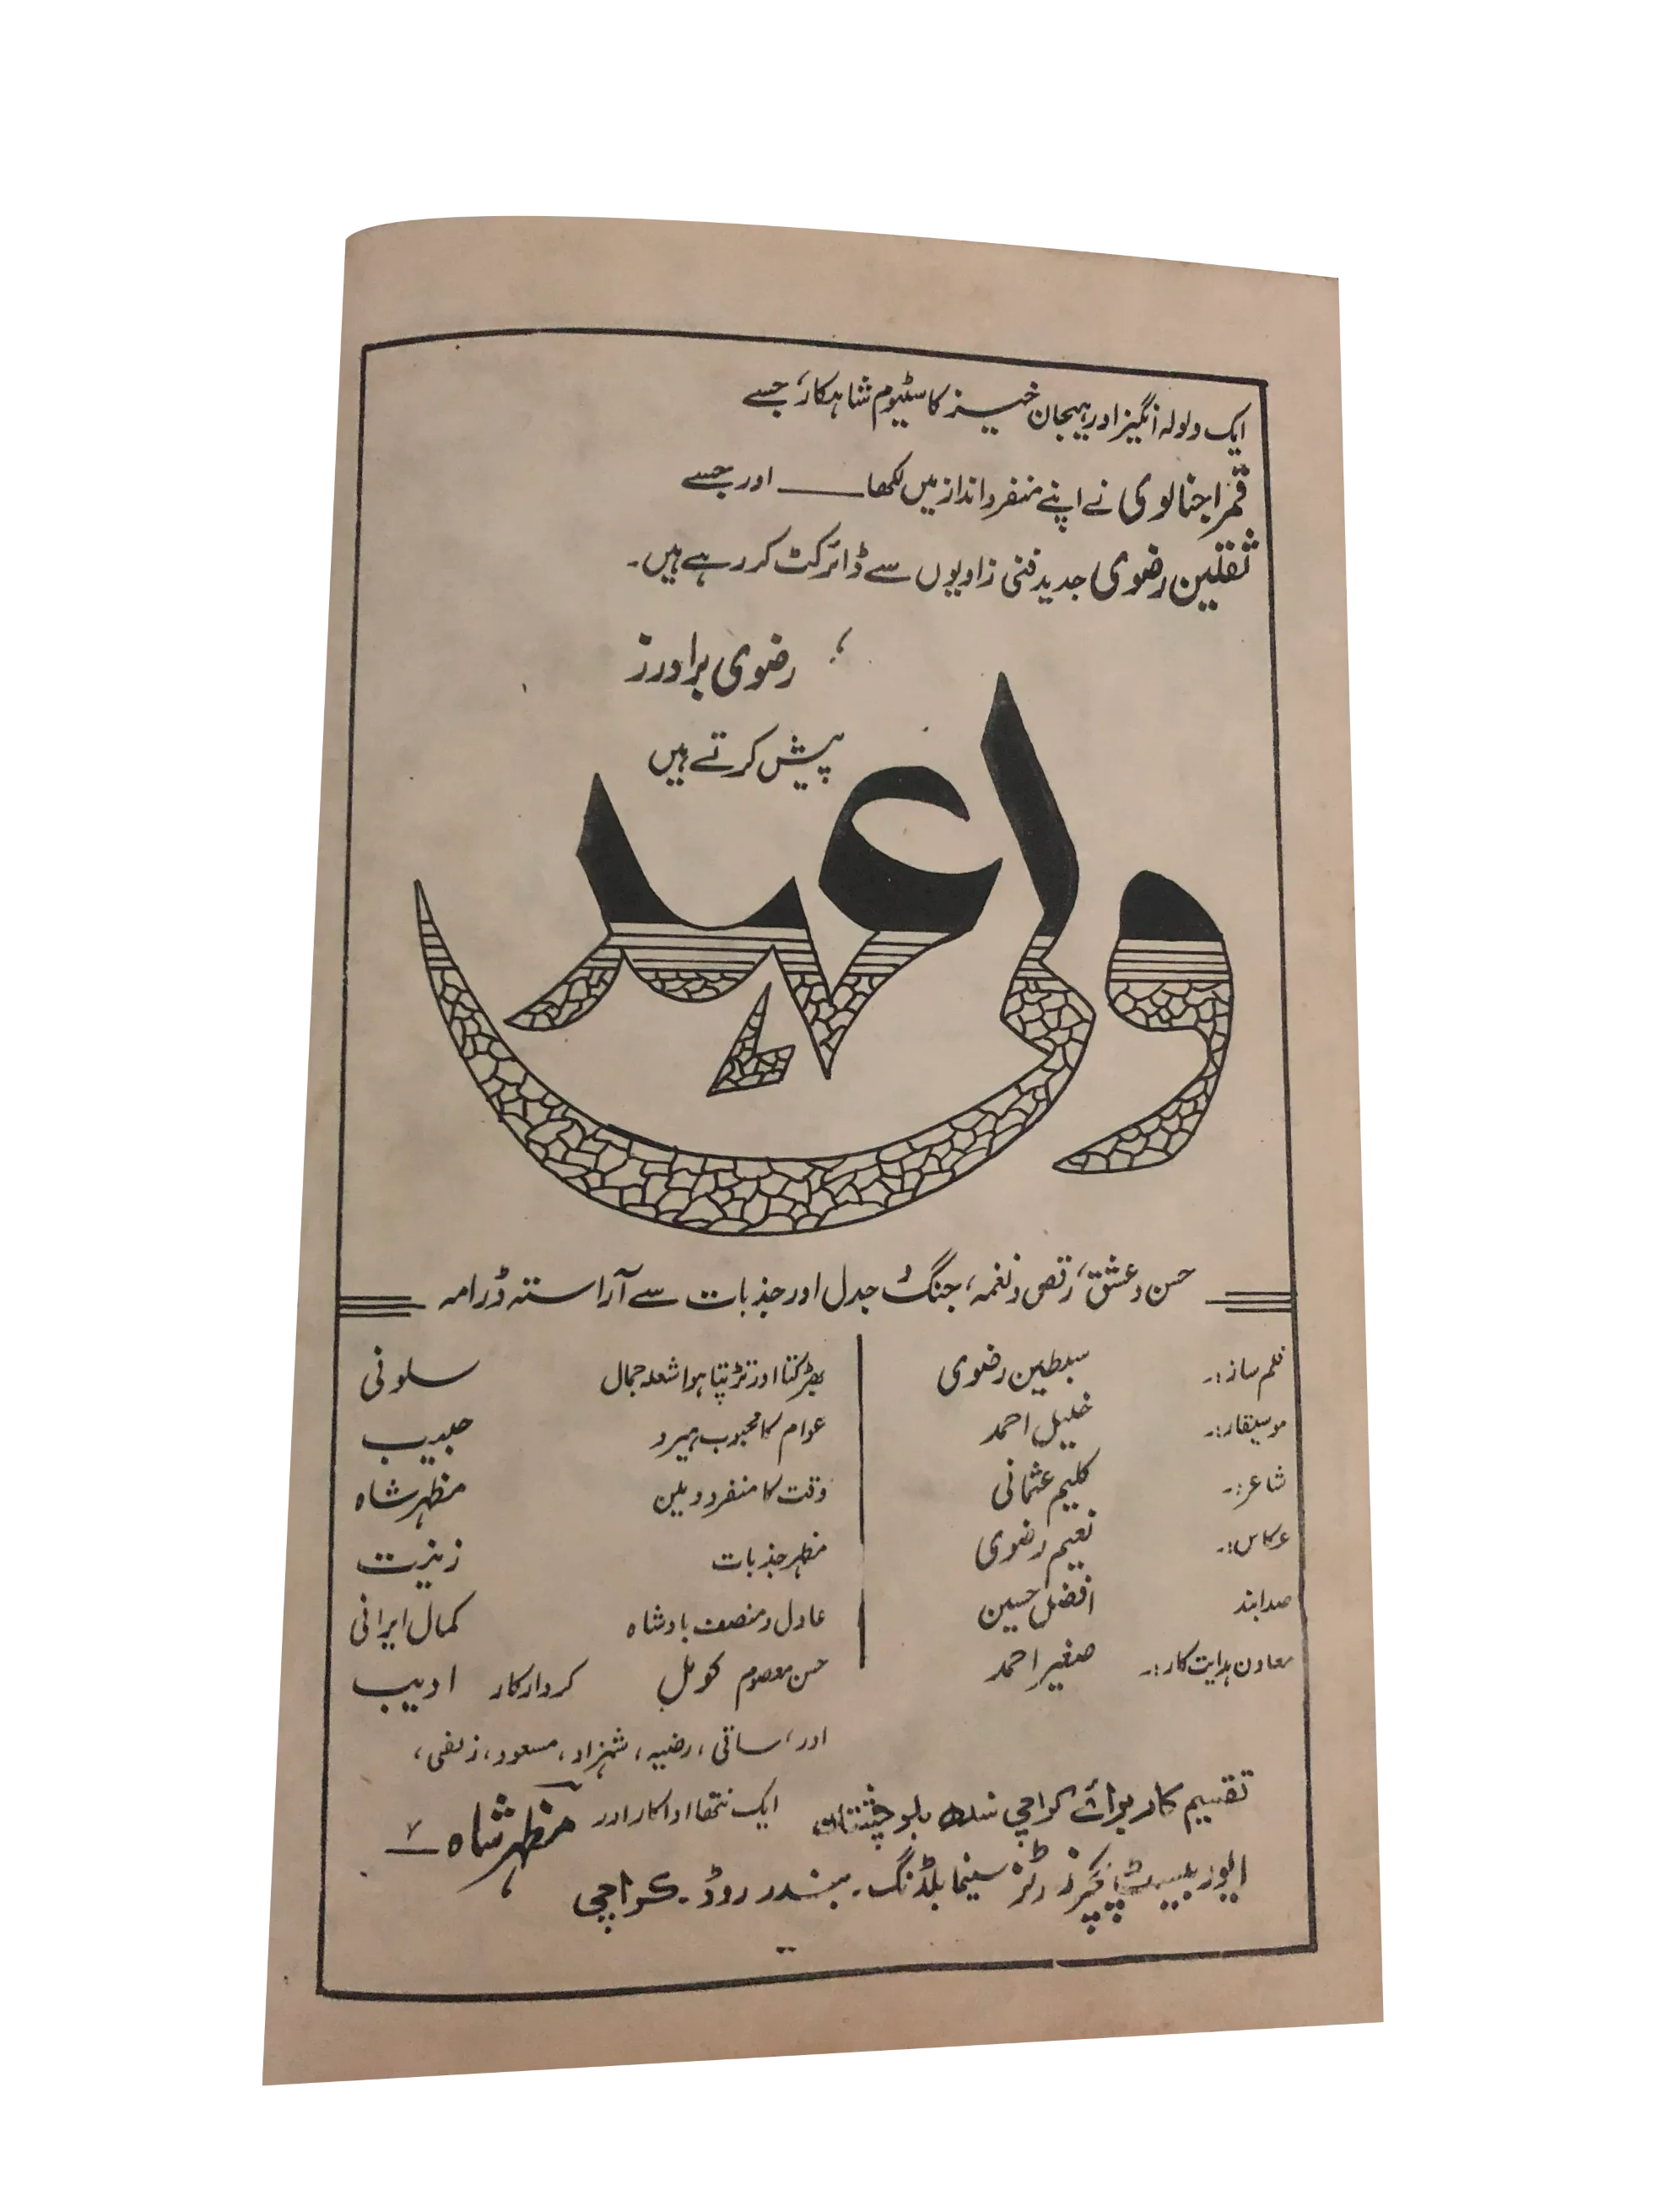 ایک ولولہ انگیز اور ہیجان خیز کاسٹیوم شاہکار، جسے
قمر اجنالوی نے اپنے منفرد انداز میں لکھا ــــــ اور جسے
ثقلین رضوی جدید فنی زاویوں سے ڈائرکٹ کر رہے ہیں۔
رضوی برادرز
پیش کرتے ہیں
ولی عہد
حسن و عشق، رقص و نغمہ، جنگ و جدل اور جذبات سے آراستہ ڈرامہ
فلم ساز:۔ سبطین رضوی
موسیقار:۔ خلیل احمد
شاعر:۔ کلیم عثمانی
عکاس:۔ نعیم رضوی
صدابند افضل حسین
معاون ہدایت کار:۔ صغیر احمد
بھڑکتا اور تڑپتا ہوا شعلہ جمال سلونی
عوام کا محبوب ہیرو حبیب
وقت کا منفرد ویلن مظہر شاہ
مظہر جذبات زینت
عادل و منصف بادشاہ کمال ایرانی
حسن معصوم کومل کردار کار ادیب
اور، ساقی، رضیہ، شہزاد، مسعود، زلفی،
ایک ننھا اداکار اور مظہر شاہ
تقسیم کار برائے کراچی سندھ بلوچستان
ایور بیسٹ پکچرز رٹز سینما بلڈنگ۔ بندر روڈ۔ کراچی